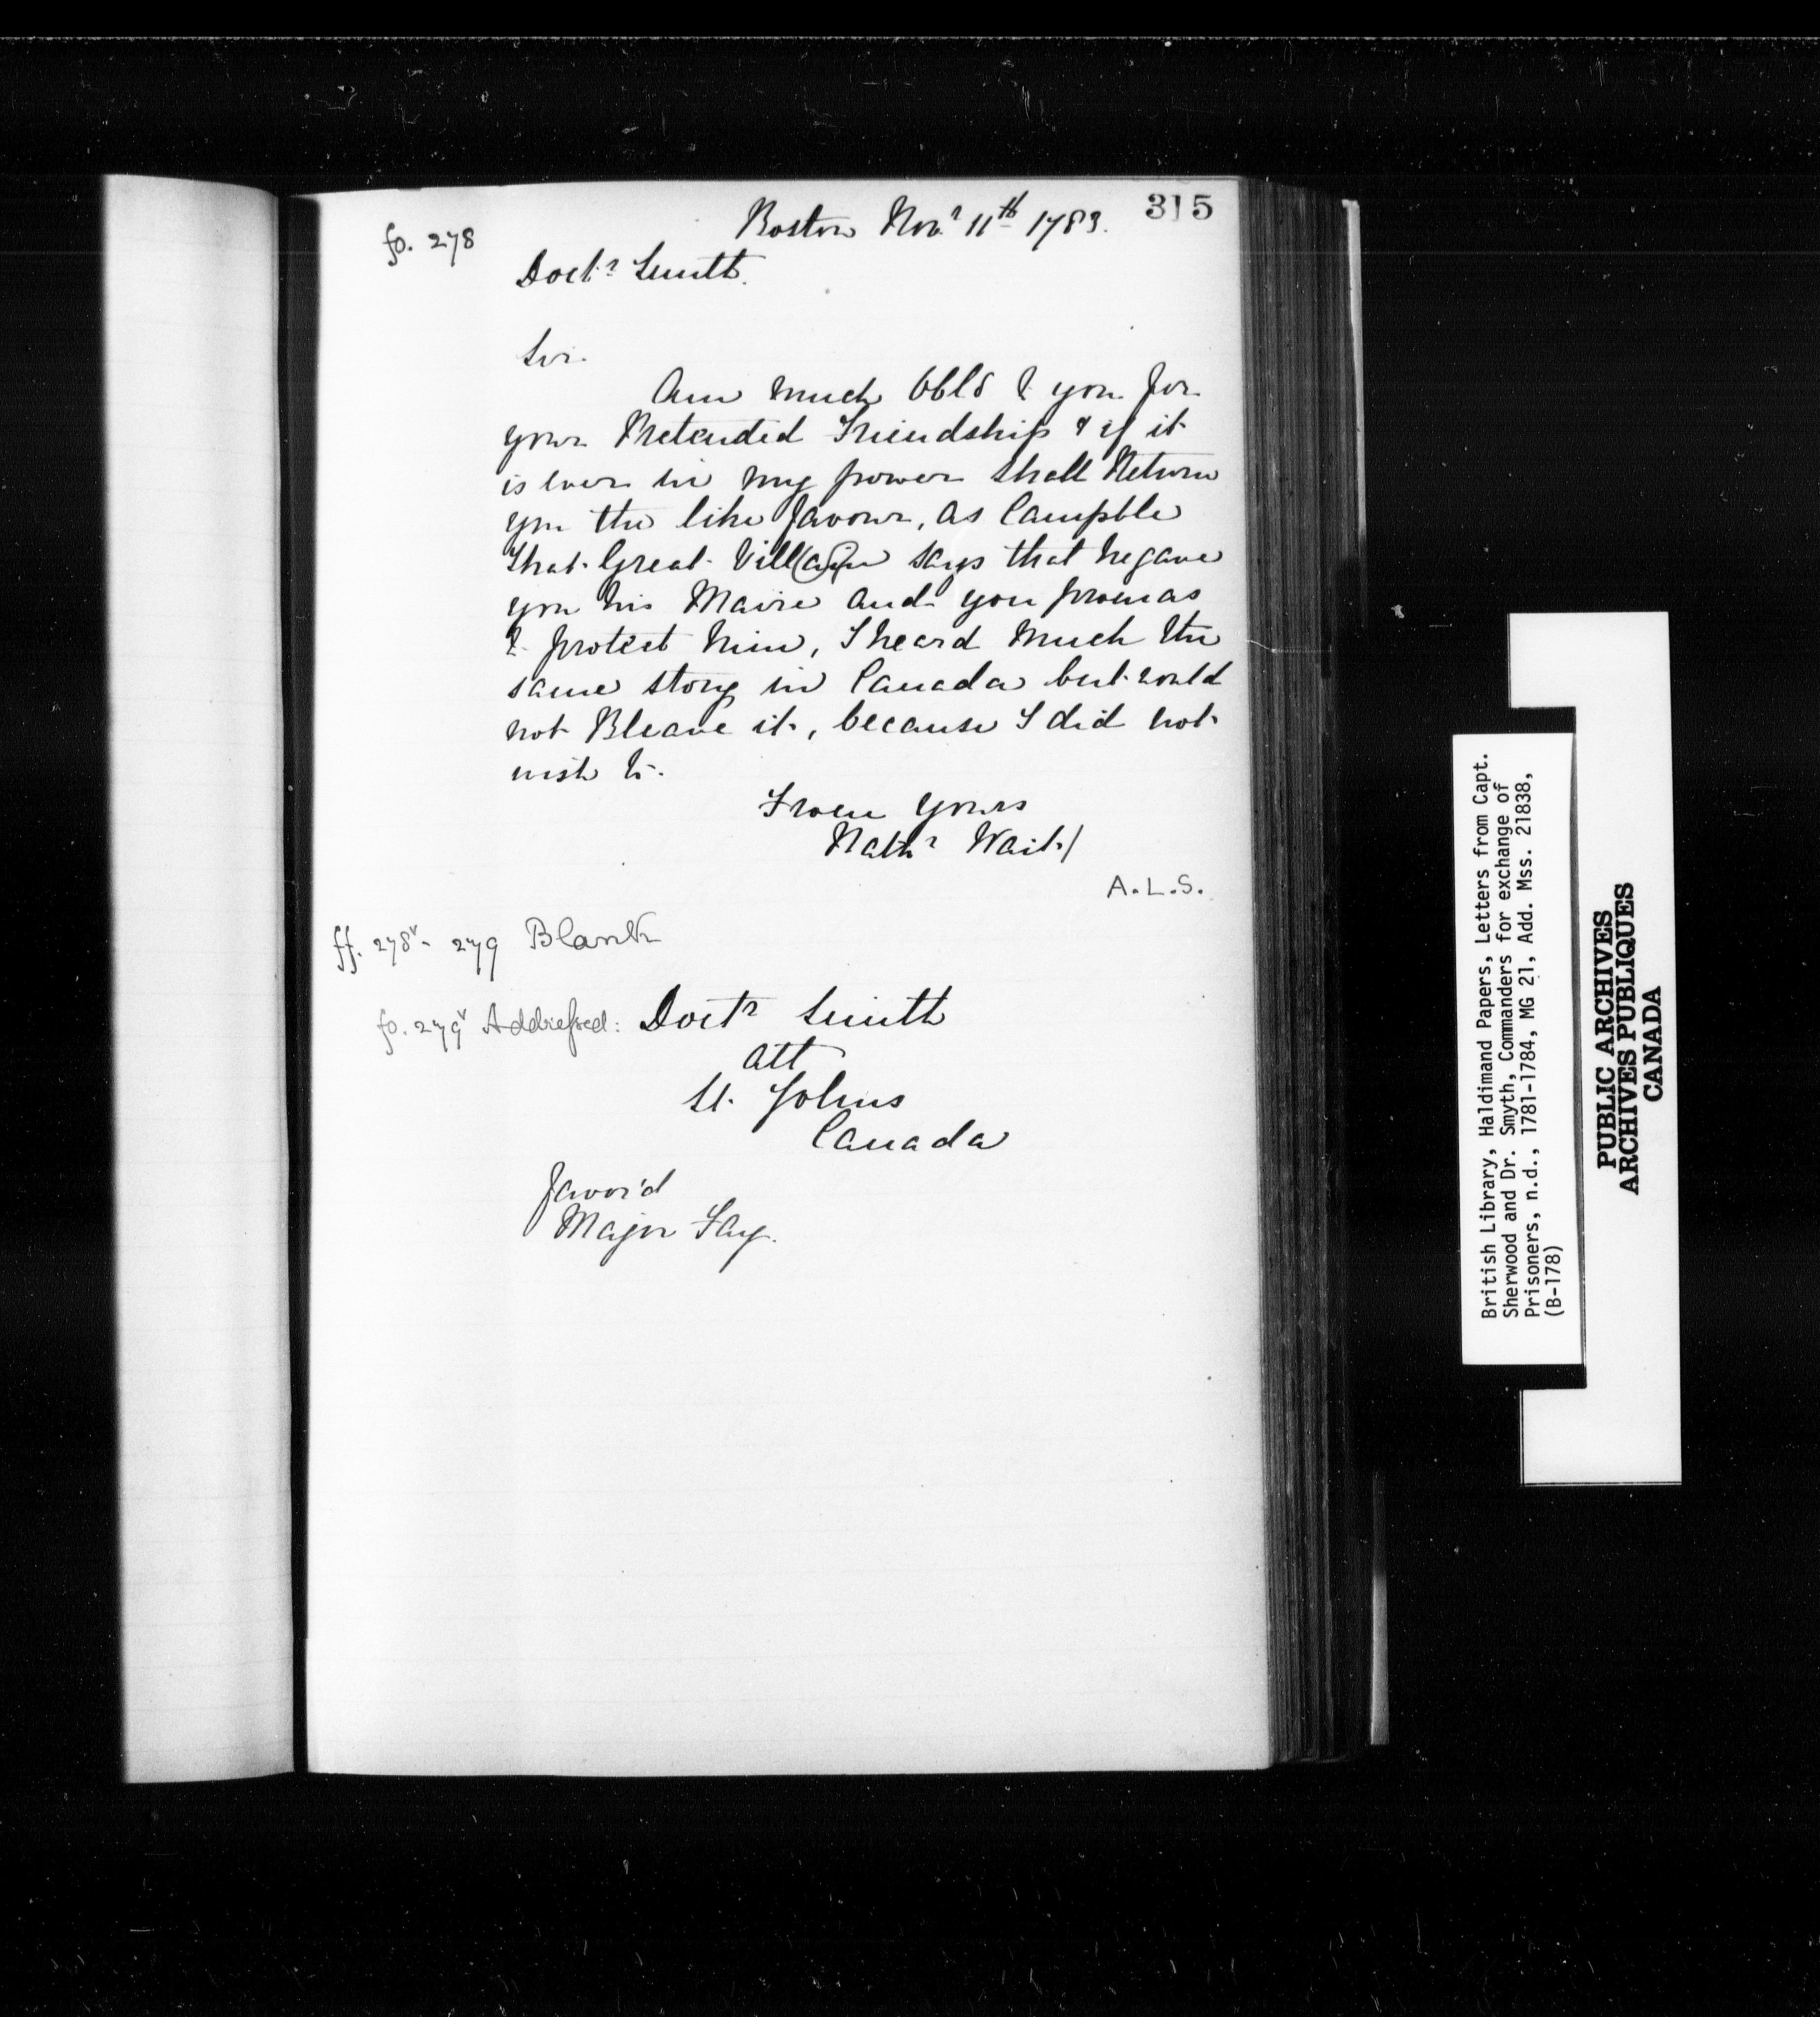 315
fo. 278
Boston Novr 11th 1783.
Doctr Smith.
Sir.
Am much Obld to you for
your Pretended Friendship & if it
is ever in my power shall Return
you the like favour, as Campble
that Great Villain says that he gave
you his Maire and you promas
to protect him, I heard much the
same story in Canada but would
not Bleave it, because I did not
wish to.
From Yours
Nathl Wait/
A.L.S.
ff. 278v - 279 Blank
fo. 279v Addressed: Doctr Smith
att
St. Johns
Canada
favor'd
Major Fay.
British Library, Haldimand Papers, Letters from Capt.
Sherwood and Dr. Smyth, Commanders for exchange of
Prisoners, n.d., 1781-1784, MG 21, Add. Mss. 21838,
(B-178)
PUBLIC ARCHIVES
ARCHIVES PUBLIQUES
CANADA